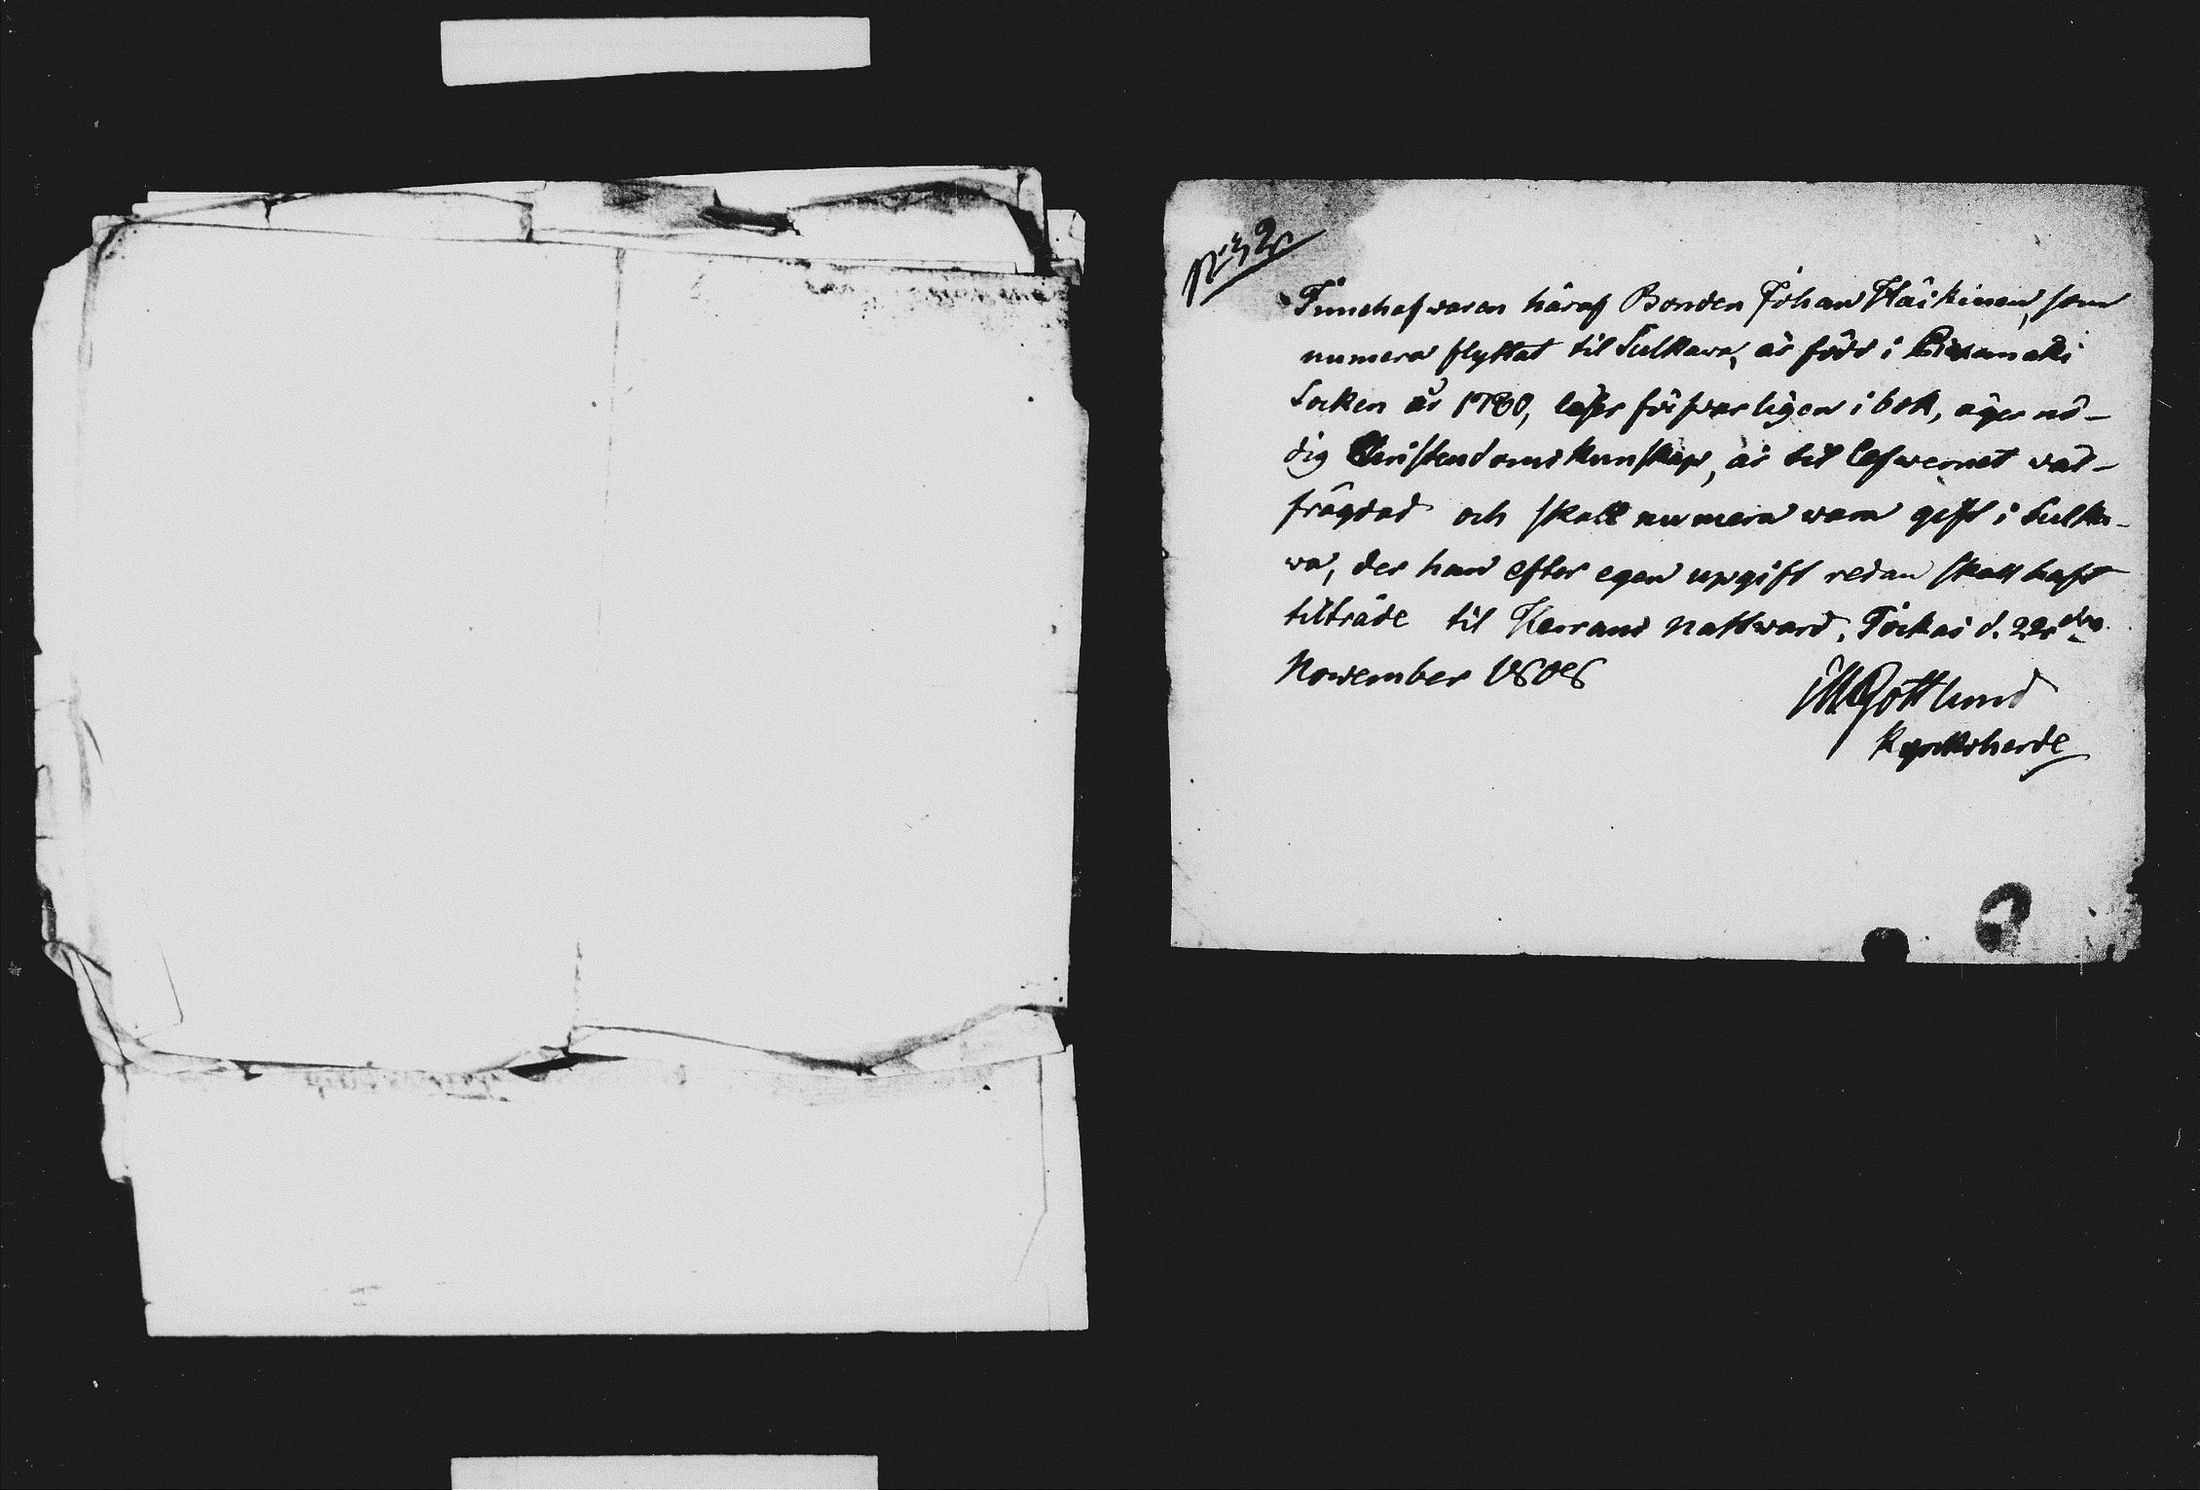 N:32
Innehafvaren häraf Bonden Johan Häikinen, som
numera flyttat til Sulkava, är född i Piexämäki
Socken år 1780, läser försvarligen i bok, äger nö-
dig Christendomskunskap, är til lefvernet väl-
frägdad och skall numera vara gift i Sulka-
va, der han efter egen upgift redan skall haft
tilträde til Herrans nattvard. Jockas d. 22dra
November 1808
M Gottlund
Kyrkoherde